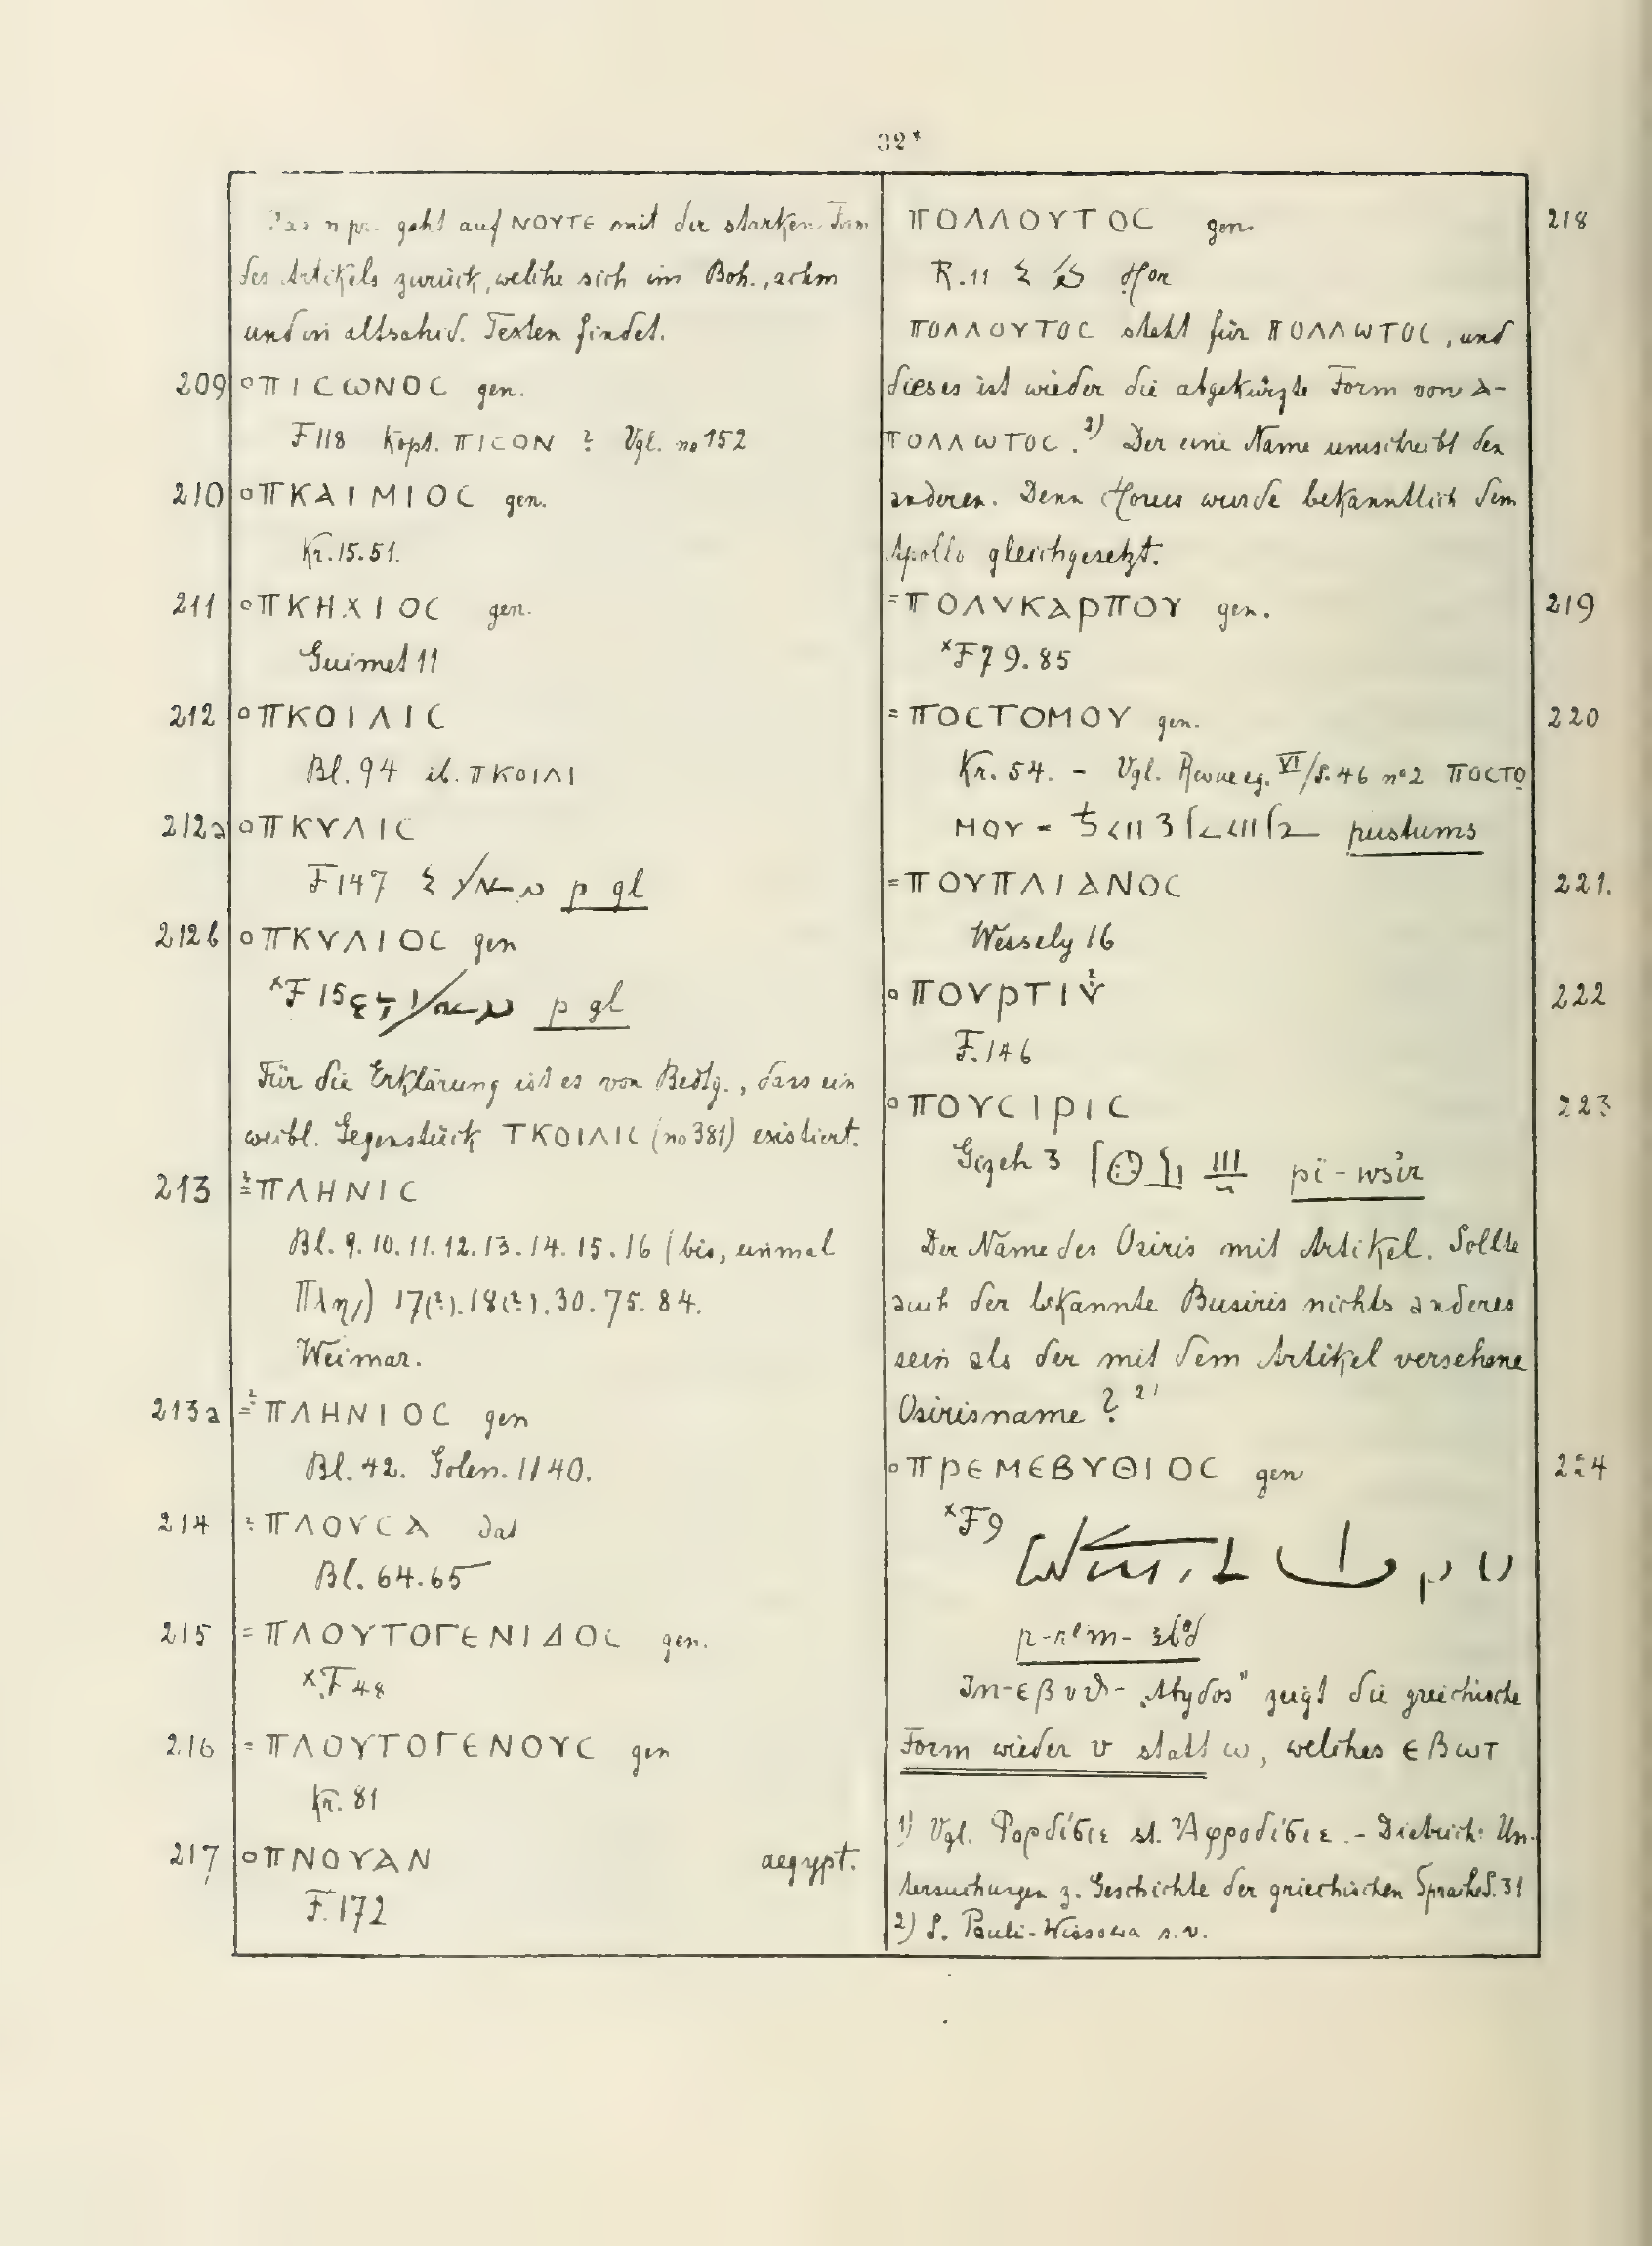 32*
Das n pr. geht auf ΝΟΥΤΕ mit der starken Form
des Artikels zurück, welche sich im Boh., achm
und in altsahid. Texten findet.
209 °ΠΙCωΝΟC gen.
F 118 Kopt. ΠΙCΟΝ ? Vgl. no 152
210 °ΠΚΑΙΜΙΟC gen.
Kr. 15. 51.
211 °ΠΚΗΧΙΟC gen.
Guimet 11
212 °ΠΚΟΙΛΙC
Bl. 94 ib. ΠΚΟΙΛΙ
212a °ΠΚΥΛΙC
F 147 p gl
212b °ΠΚΥΛΙΟC gen
*F 15 p gl
Für die Erklärung ist es von Bedtg., dass ein
weibl. Gegenstück ΤΚΟΙΛΙC (no 381) existiert.
213 =?ΠΛΗΝΙC
Bl. 9. 10. 11. 12. 13. 14. 15. 16 (bis, einmal
Πλη/) 17(?). 18(?). 30. 75. 84.
Weimar.
213a =?ΠΛΗΝΙΟC gen
Bl. 42. Golen. 1140.
214 ?ΠΛΟΥCΑ dat
Bl. 64. 65
215 =ΠΛΟΥΤΟΓΕΝΙΔΟC gen.
*F 48
216 =ΠΛΟΥΤΟΓΕΝΟΥC gen
Kr. 81
217 °ΠΝΟΥΑΝ aegypt.
F. 172
ΠΟΛΛΟΥΤΟC gen. 218
R. 11 Hor
ΠΟΛΛΟΥΤΟC steht für ΠΟΛΛωΤΟC, und
dieses ist wieder die abgekürzte Form von Α-
ΠΟΛΛωΤΟC. Der eine Name umschreibt den
anderen. Denn Horus wurde bekanntlich dem
Apollo gleichgesetzt.
=ΠΟΛΥΚΑΡΠΟΥ gen. 219
*F 79. 85
=ΠΟCΤΟΜΟΥ gen. 220
Kr. 54. - Vgl. Revue eg. VI/S. 46 n° 2 ΠΟCΤΟ
ΜΟΥ = pustums
=ΠΟΥΠΛΙΑΝΟC 221.
Wessely 16
°ΠΟΥΡΤΙΥ? 222
F. 146
°ΠΟΥCΙΡΙC 223
Gizeh 3 pï-wsir
Der Name des Osiris mit Artikel. Sollte
auch der bekannte Busiris nichts anderes
sein als der mit dem Artikel versehene
Osirisname? 2)
°ΠΡΕΜΕΒΥΘΙΟC gen 224
*F 9
p-rem-
In -εβυϑ- „Abydos" zeigt die griechische
Form wieder υ statt ω, welches ΕΒωΤ
1) Vgl. Φορδίσιε st. Ἀφροδίσιε. - Dietrich: Un-
tersuchungen z. Geschichte der griechischen Sprache S. 31
2) S. Pauli-Wissowa s. v.